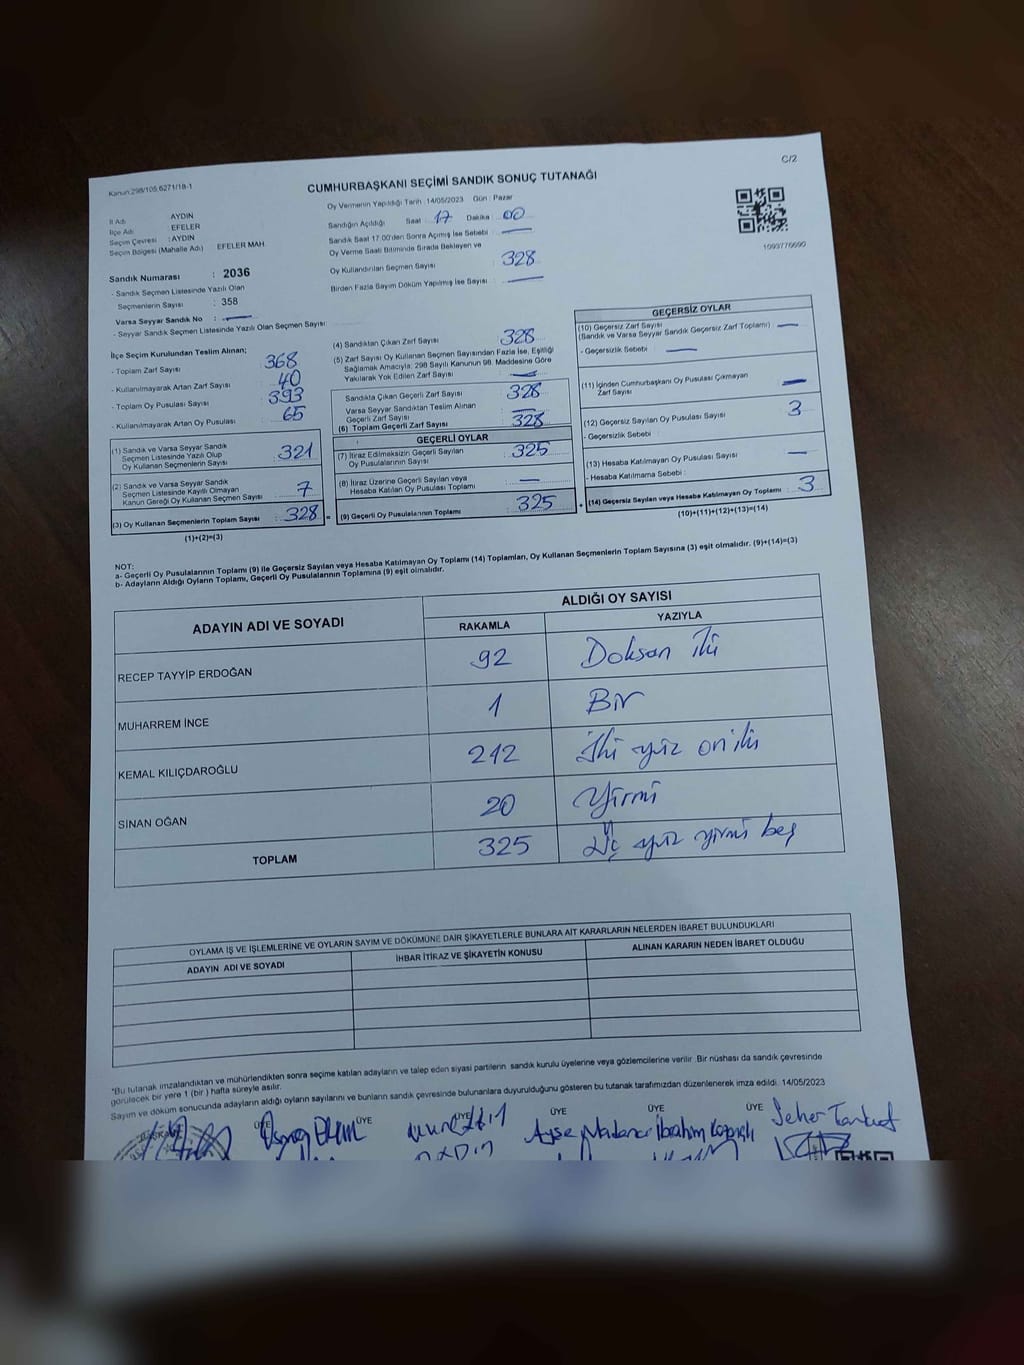 C/2
Kanun:298/105,6271/18-1
CUMHURBAŞKANI SEÇİMİ SANDIK SONUÇ TUTANAĞI
Oy Vermenin Yapıldığı Tarih :14/05/2023 Gün : Pazar
İl Adı : AYDIN
İlçe Adı : EFELER
Seçim Çevresi : AYDIN
Seçim Bölgesi (Mahalle Adı) EFELER MAH.
Sandığın Açıldığı Saat 17 Dakika 00
Sandık Saat 17.00'den Sonra Açılmış İse Sebebi : —
Oy Verme Saati Bitiminde Sırada Bekleyen ve
Oy Kullandırılan Seçmen Sayısı : 328
Birden Fazla Sayım Döküm Yapılmış İse Sayısı : —
1093776690
Sandık Numarası : 2036
- Sandık Seçmen Listesinde Yazılı Olan
Seçmenlerin Sayısı : 358
Varsa Seyyar Sandık No : —
- Seyyar Sandık Seçmen Listesinde Yazılı Olan Seçmen Sayısı:
İlçe Seçim Kurulundan Teslim Alınan;
- Toplam Zarf Sayısı : 368
- Kullanılmayarak Artan Zarf Sayısı : 40
- Toplam Oy Pusulası Sayısı : 393
- Kullanılmayarak Artan Oy Pusulası : 65
(1) Sandık ve Varsa Seyyar Sandık
Seçmen Listesinde Yazılı Olup
Oy Kullanan Seçmenlerin Sayısı : 321
(2) Sandık ve Varsa Seyyar Sandık
Seçmen Listesinde Kayıtlı Olmayan
Kanun Gereği Oy Kullanan Seçmen Sayısı : 7
(3) Oy Kullanan Seçmenlerin Toplam Sayısı : 328
(1)+(2)=(3)
(4) Sandıktan Çıkan Zarf Sayısı : 328
(5) Zarf Sayısı Oy Kullanan Seçmen Sayısından Fazla İse, Eşitliği
Sağlamak Amacıyla; 298 Sayılı Kanunun 98. Maddesine Göre
Yakılarak Yok Edilen Zarf Sayısı : —
Sandıkta Çıkan Geçerli Zarf Sayısı : 328
Varsa Seyyar Sandıktan Teslim Alınan
Geçerli Zarf Sayısı : —
(6) Toplam Geçerli Zarf Sayısı : 328
GEÇERLİ OYLAR
(7) İtiraz Edilmeksizin Geçerli Sayılan
Oy Pusulalarının Sayısı : 325
(8) İtiraz Üzerine Geçerli Sayılan veya
Hesaba Katılan Oy Pusulası Toplamı : —
(9) Geçerli Oy Pusulalarının Toplamı : 325
GEÇERSİZ OYLAR
(10) Geçersiz Zarf Sayısı
(Sandık ve Varsa Seyyar Sandık Geçersiz Zarf Toplamı) : —
- Geçersizlik Sebebi : —
(11) İçinden Cumhurbaşkanı Oy Pusulası Çıkmayan
Zarf Sayısı : —
(12) Geçersiz Sayılan Oy Pusulası Sayısı : 3
- Geçersizlik Sebebi :
(13) Hesaba Katılmayan Oy Pusulası Sayısı : —
- Hesaba Katılmama Sebebi :
(14) Geçersiz Sayılan veya Hesaba Katılmayan Oy Toplamı : 3
(10)+(11)+(12)+(13)=(14)
NOT:
a- Geçerli Oy Pusulalarının Toplamı (9) ile Geçersiz Sayılan veya Hesaba Katılmayan Oy Toplamı (14) Toplamları, Oy Kullanan Seçmenlerin Toplam Sayısına (3) eşit olmalıdır. (9)+(14)=(3)
b- Adayların Aldığı Oyların Toplamı, Geçerli Oy Pusulalarının Toplamına (9) eşit olmalıdır.
ADAYIN ADI VE SOYADI ALDIĞI OY SAYISI
RAKAMLA YAZIYLA
RECEP TAYYİP ERDOĞAN 92 Doksan iki
MUHARREM İNCE 1 Bir
KEMAL KILIÇDAROĞLU 212 İki yüz on iki
SİNAN OĞAN 20 Yirmi
TOPLAM 325 Üç yüz yirmi beş
OYLAMA İŞ VE İŞLEMLERİNE VE OYLARIN SAYIM VE DÖKÜMÜNE DAİR ŞİKAYETLERLE BUNLARA AİT KARARLARIN NELERDEN İBARET BULUNDUKLARI
ADAYIN ADI VE SOYADI İHBAR İTİRAZ VE ŞİKAYETİN KONUSU ALINAN KARARIN NEDEN İBARET OLDUĞU
*Bu tutanak imzalandıktan ve mühürlendikten sonra seçime katılan adayların ve talep eden siyasi partilerin sandık kurulu üyelerine veya gözlemcilerine verilir. Bir nüshası da sandık çevresinde
görülecek bir yere 1 (bir ) hafta süreyle asılır.
Sayım ve döküm sonucunda adayların aldığı oyların sayılarını ve bunların sandık çevresinde bulunanlara duyurulduğunu gösteren bu tutanak tarafımızdan düzenlenerek imza edildi. 14/05/2023
BAŞKAN ÜYE ÜYE ÜYE ÜYE ÜYE
Ayşe İbrahim Seher Tankut